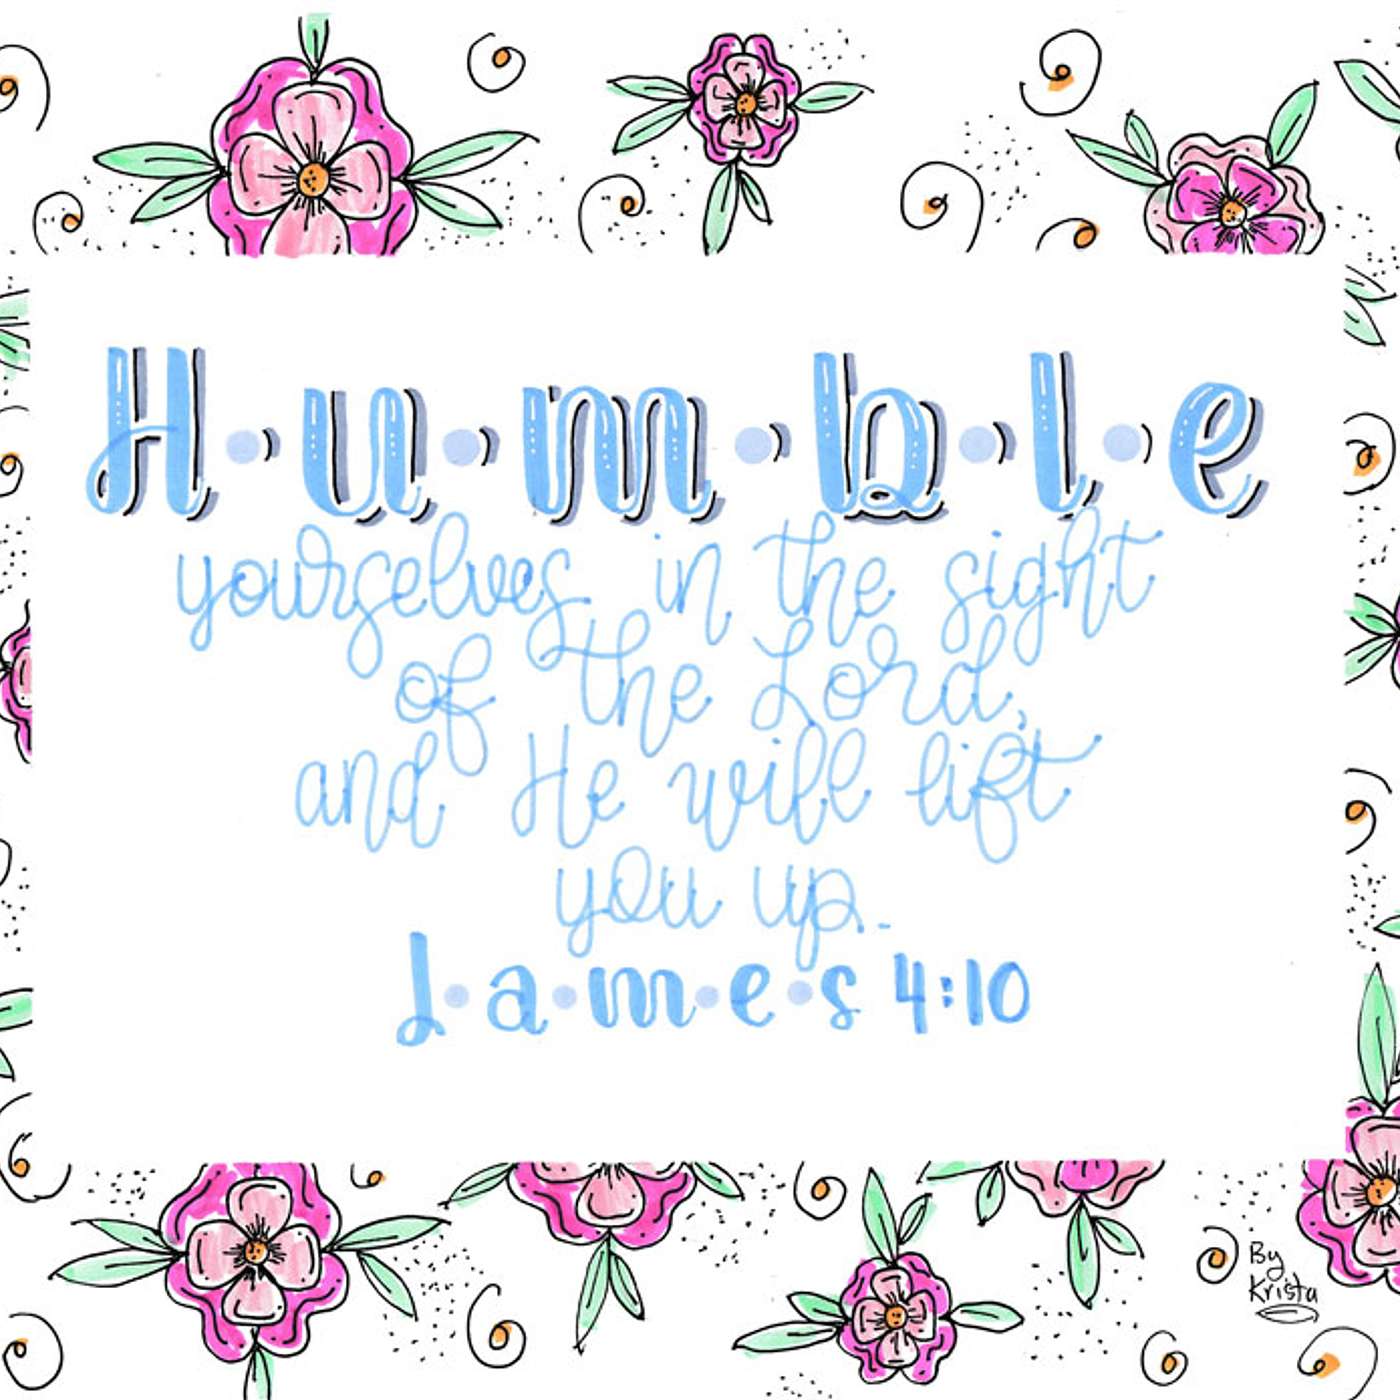 H·u·m·b·l·e
yourselves in the sight
of the Lord,
and He will lift
you up.
J·a·m·e·s 4:10
By
Krista